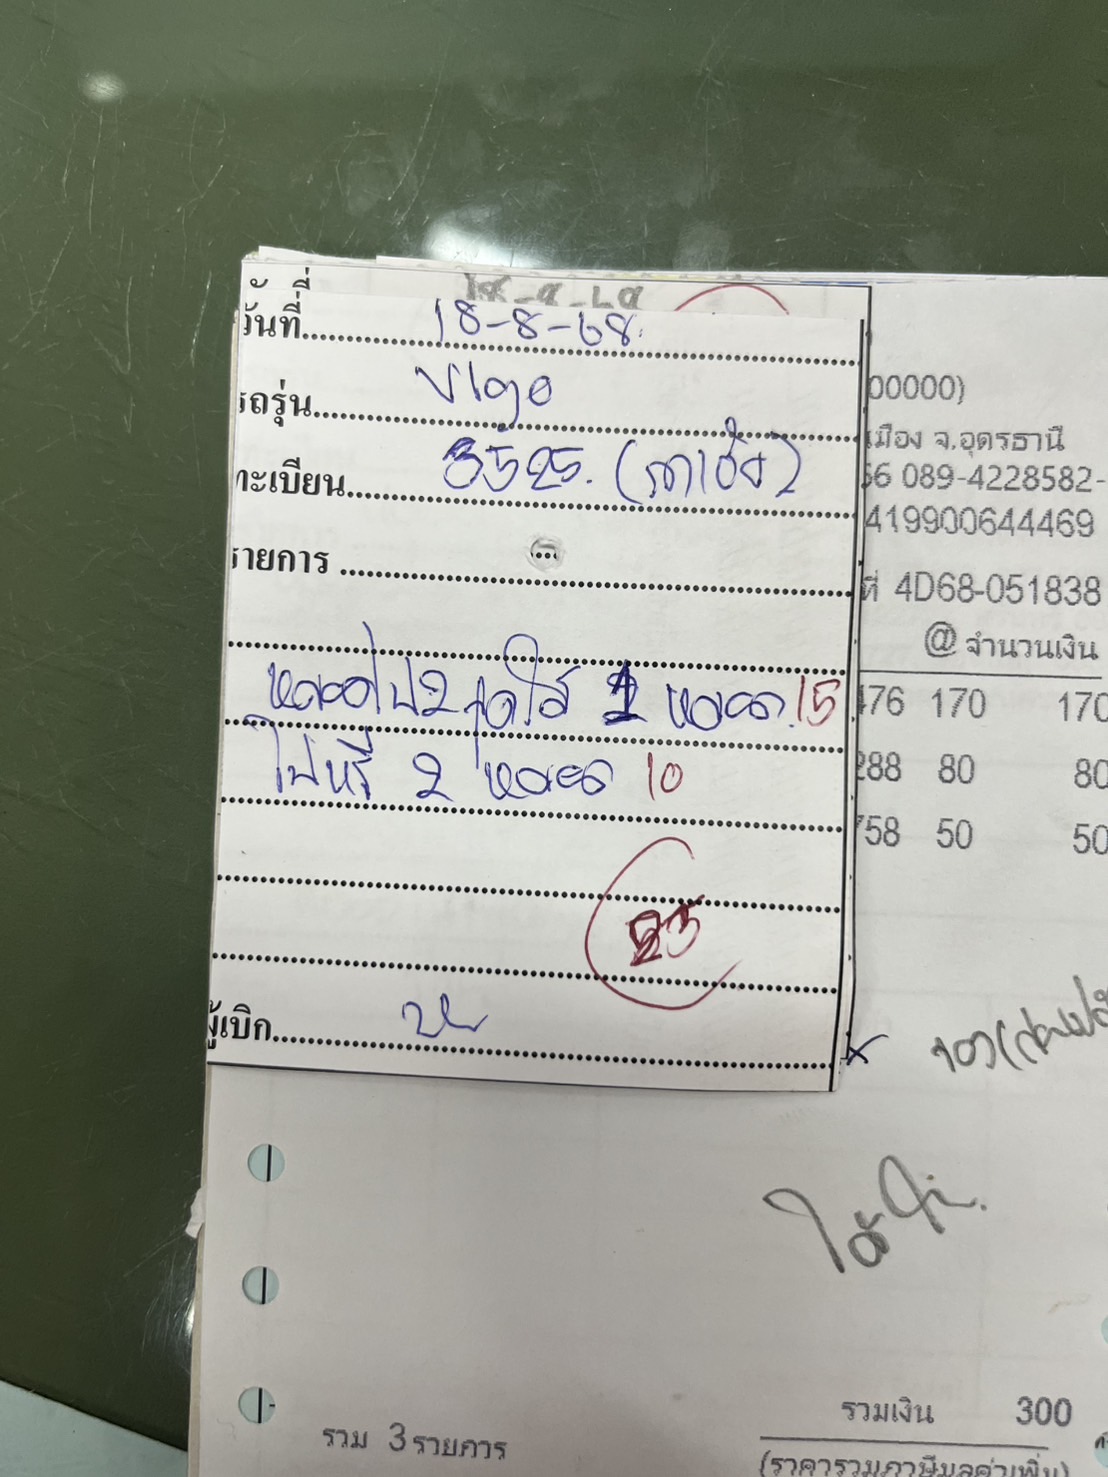 วันที่ 18-8-68
รถรุ่น Vigo
ทะเบียน 3525. (ตาเข้ม)
รายการ
หลอดไฟ 2 จุดใส 1 หลอด 15
ไฟหรี่ 2 หลอด 10
25
ผู้เบิก
00000)
เมือง จ.อุดรธานี
56 089-4228582-
419900644469
ที่ 4D68-051838
@ จำนวนเงิน
476 170 170
288 80 80
758 50 50
รวมเงิน 300
รวม 3 รายการ
(ราคารวมภาษีมูลค่าเพิ่ม)